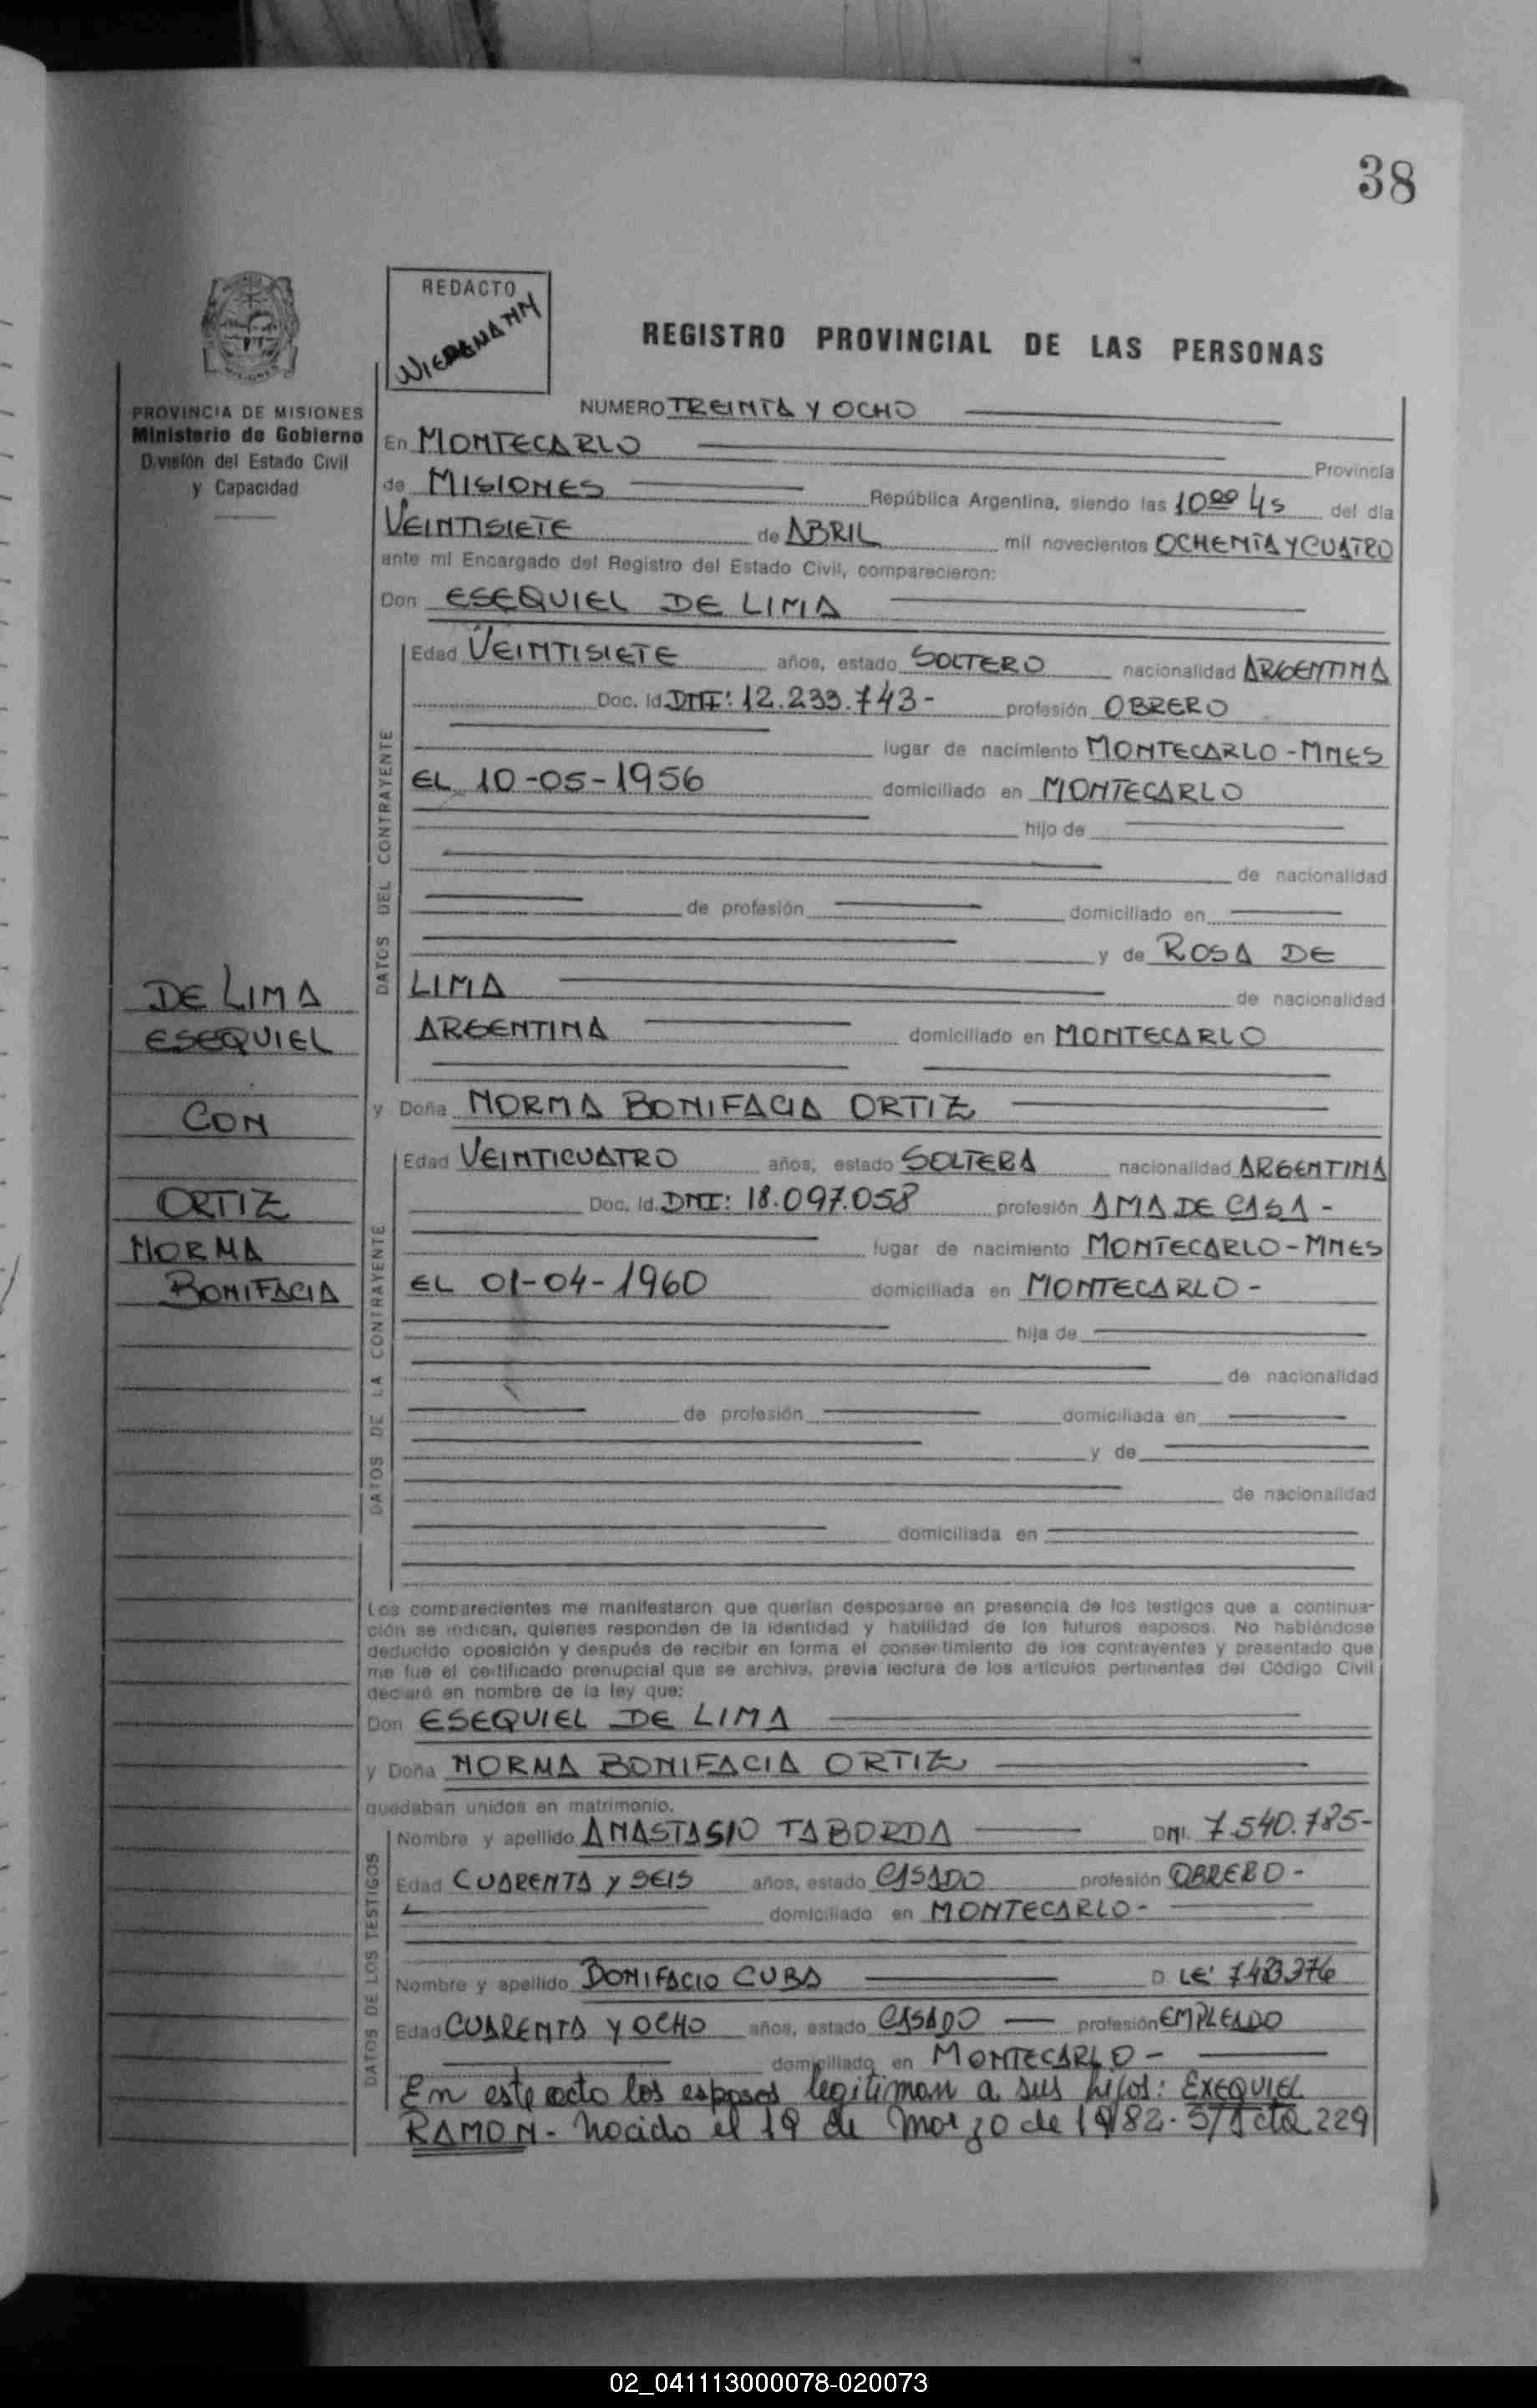 38
REDACTO
WIEDEMANN
REGISTRO PROVINCIAL DE LAS PERSONAS
PROVINCIA DE MISIONES
Ministerio de Gobierno
División del Estado Civil
y Capacidad
NUMERO TREINTA Y OCHO
En MONTECARLO Provincia
de MISIONES República Argentina, siendo las 10 00 hs del día
VEINTISIETE de ABRIL mil novecientos OCHENTA Y CUATRO
ante mi Encargado del Registro del Estado Civil, comparecieron:
Don ESEQUIEL DE LIMA
DATOS DEL CONTRAYENTE
Edad VEINTISIETE años, estado SOLTERO nacionalidad ARGENTINA
Doc. Id. DNI: 12.233.743- profesión OBRERO
lugar de nacimiento MONTECARLO-MNES
EL 10-05-1956 domiciliado en MONTECARLO
hijo de
de nacionalidad
de profesión domiciliado en
y de ROSA DE
LIMA de nacionalidad
ARGENTINA domiciliado en MONTECARLO
DE LIMA
ESEQUIEL
CON
ORTIZ
NORMA
BONIFACIA
y Doña NORMA BONIFACIA ORTIZ
DATOS DE LA CONTRAYENTE
Edad VEINTICUATRO años, estado SOLTERA nacionalidad ARGENTINA
Doc. Id. DNI: 18.097.058 profesión AMA DE CASA-
lugar de nacimiento MONTECARLO-MNES
EL 01-04-1960 domiciliada en MONTECARLO-
hija de
de nacionalidad
de profesión domiciliada en
y de
de nacionalidad
domiciliada en
Los comparecientes me manifestaron que querían desposarse en presencia de los testigos que a continua-
ción se indican, quienes responden de la identidad y habilidad de los futuros esposos. No habiéndose
deducido oposición y después de recibir en forma el consentimiento de los contrayentes y presentado que
me fue el certificado prenupcial que se archiva, previa lectura de los artículos pertinentes del Código Civil
declaré en nombre de la ley que:
Don ESEQUIEL DE LIMA
y Doña NORMA BONIFACIA ORTIZ
quedaban unidos en matrimonio.
DATOS DE LOS TESTIGOS
Nombre y apellido ANASTASIO TABORDA DNI. 7.540.785-
Edad CUARENTA Y SEIS años, estado CASADO profesión OBRERO-
domiciliado en MONTECARLO-
Nombre y apellido BONIFACIO CUBA D LE:
Edad CUARENTA Y OCHO años, estado CASADO profesión EMPLEADO
domiciliado en MONTECARLO-
En este acto los esposos legitiman a sus hijos: EXEQUIEL
RAMON- nacido el 19 de Marzo de 1982- S/Acta 229
02_041113000078-020073